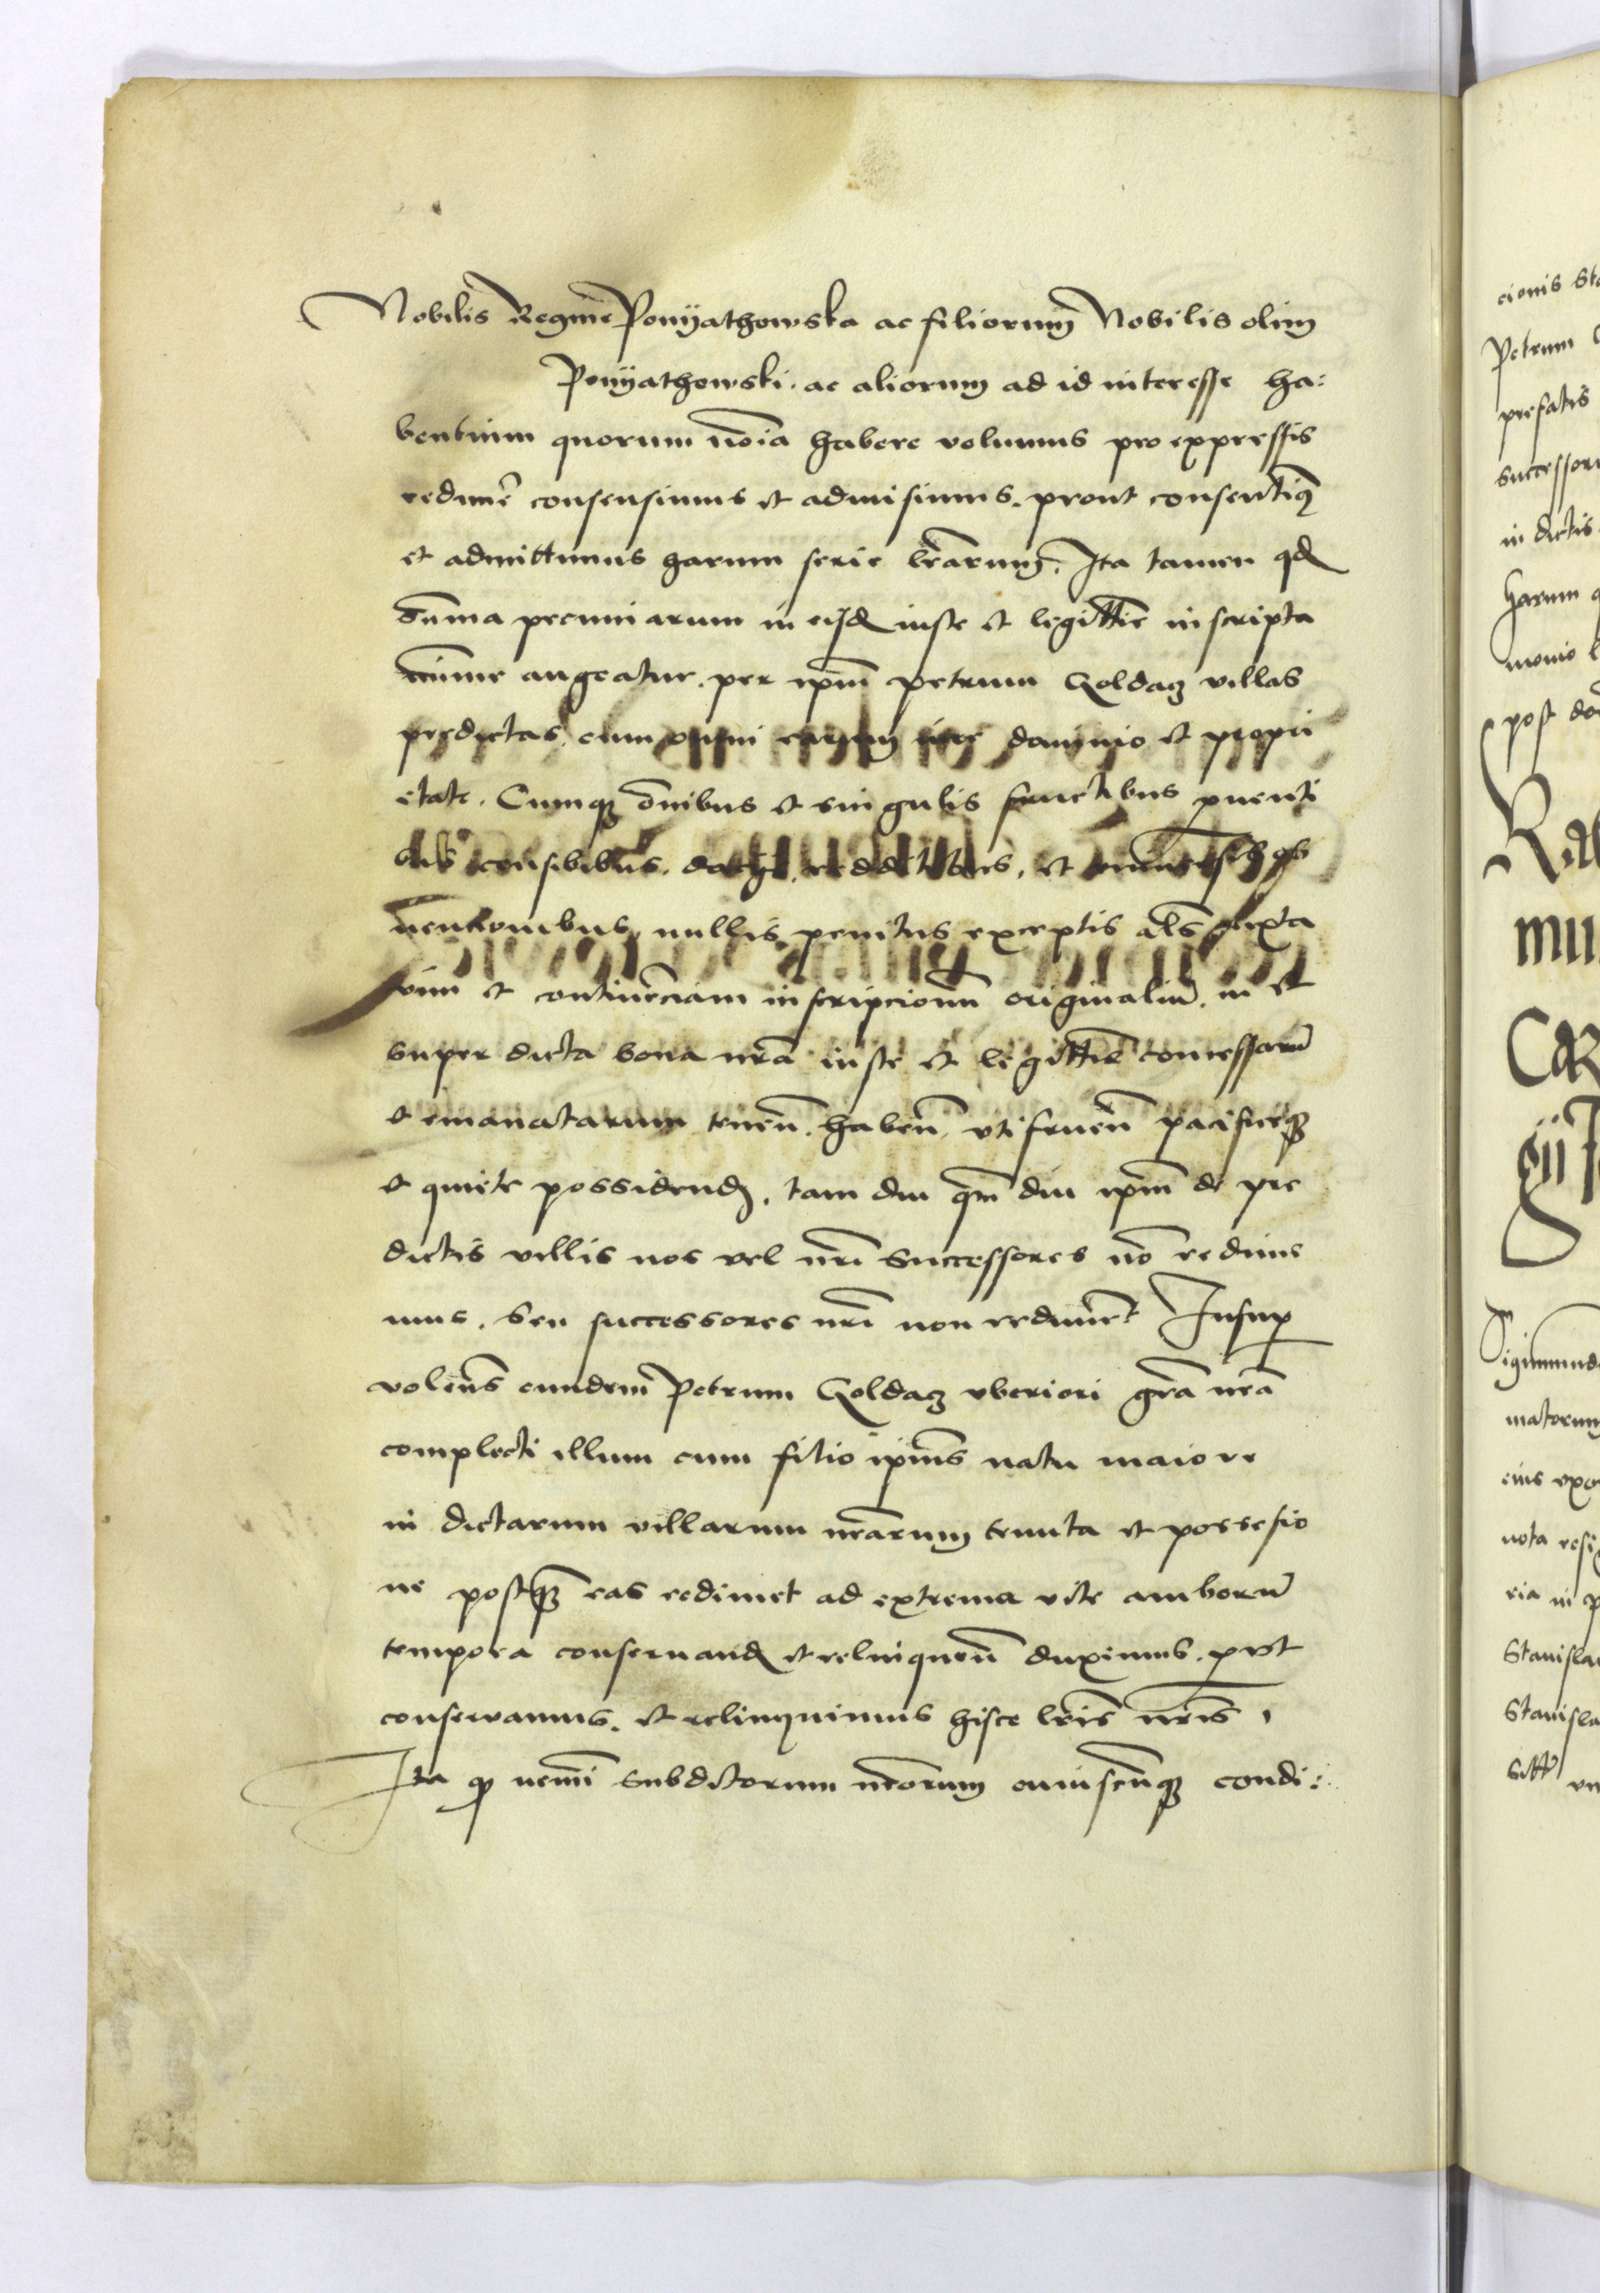 Nobilis Regine Ponyathowska ac filiorum Nobilis olim
Ponyathowski. ac aliorum ad id interesse ha:
bentium quorum noīa habere volumus pro expressis
redimē consensimus et admisimus. prout consentimꝰ
et admittimus harum serie lrārum. Ita tamen qđ
summa pecuniarum in eisđ iuste et legittīe inscripta
minime augeatur. per ipm̄ petrum Goldacz villas
predictas. cum omni earum iure dominio et propri
etate. Cumqꝫ om̄ibus et singulis fructibus prouenti
bus censibus. daciis. redditibus. et
uencionibus. nullis penitus exceptis als̄ iuxta
vim et continēciam inscripcionū originaliū. in et
super dicta bona nrā iuste et legittīe concessarū
et emanatarum tenen̄. haben̄. utifruen̄ pacificeqꝫ
et quiete possidenđ. tam diu qm̄ diu ipm̄ de pre
dictis villis nos vel nrī Successores nō redimi
mus. Seu successores nrī non redimēt Insuꝑ
volen̄s eundem Petrum Goldacz vberiori grā nrā
complecti illum cum filio ipiu̅s natu maiore
in dictarum villarum nrārum tenuta et possessio
ne postqꝫ eas redimet ad extrema vite amborū
tempora conseruanđ et relinquen̄ duximus. prōt
conseruamus. et relinquimus hisce lrīs nrīs.
Ita qđ nemī Subditorum nrōrum cuiuscūqꝫ condi:
cionis Sta
Petrum
prefatis
successor
in dictis
harum
monio
post
mu
Sigismund
matorum
eius uxo
nota resi
ria in p
Stanisla
Stanisla